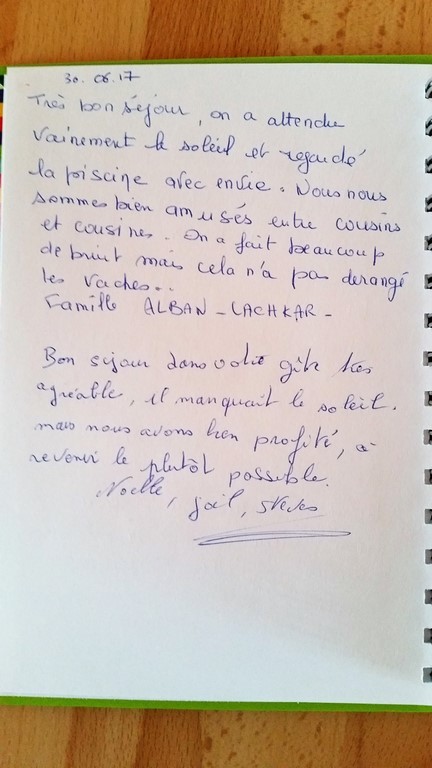 30.06.17
Très bon séjour, on a attendu
vainement le soleil et regardé
la piscine avec envie. Nous nous
sommes bien amusés entre cousins
et cousines. On a fait beaucoup
de bruit mais cela n'a pas derangé
les vaches..
Famille ALBAN - LACHKAR -
Bon sejour dans votre gîte très
agréable, il manquait le soleil.
mais nous avons bien profité, à
revenir le plutôt possible.
Noëlle, Joël,